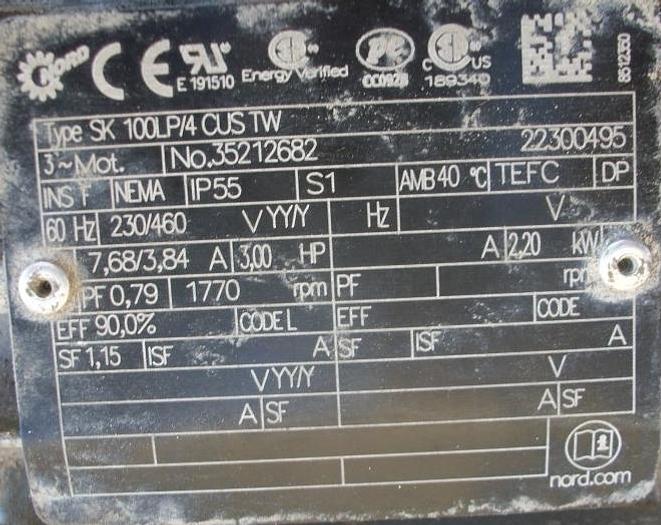 NORD CE UR SA Energy Verified CC092B C SA US
E 191510 189340
Type SK 100LP/4 CUS TW
3~Mot. No.35212682 22300495
INS F NEMA IP55 S1 AMB 40 °C TEFC DP
60 Hz 230/460 V YY/Y Hz V
7,68/3,84 A 3,00 HP A 2,20 kW
PF 0,79 1770 rpm PF rpm
EFF 90,0% CODE L EFF CODE
SF 1,15 ISF A SF ISF A
V YY/Y V
A SF A SF
nord.com